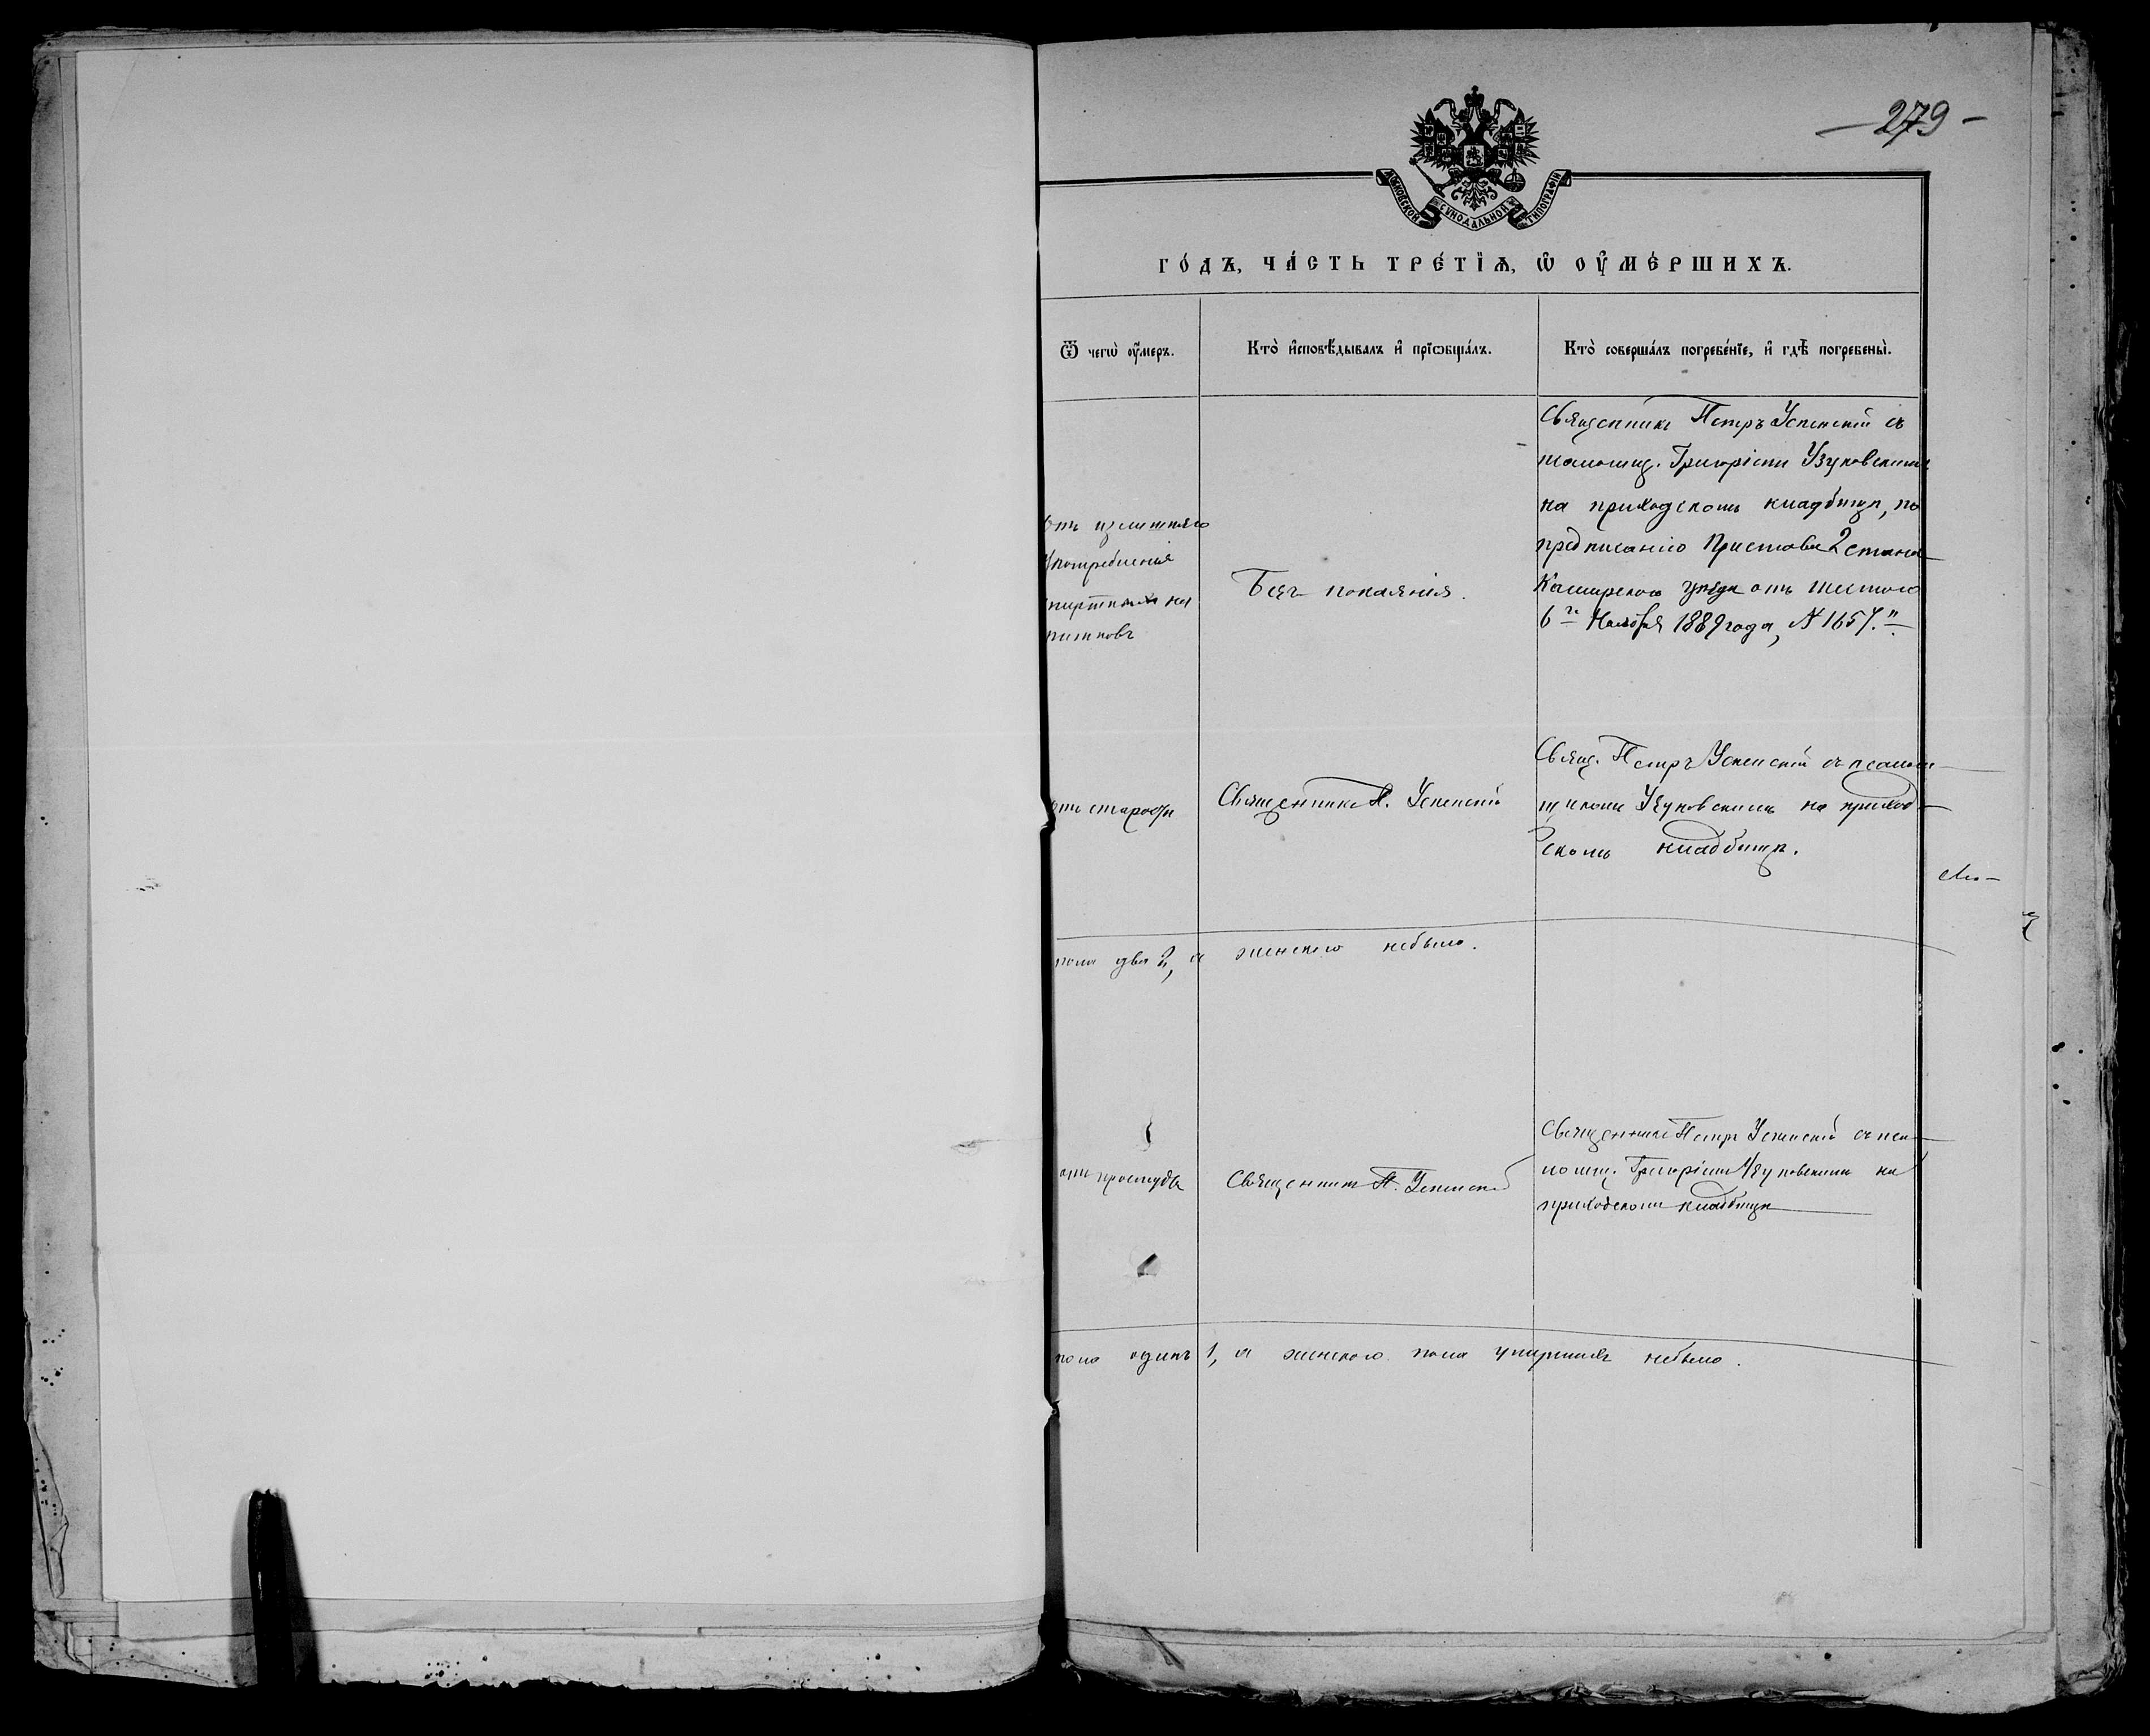 — 279 —
МОСКОВСКОЙ СѴНОДАЛЬНОЙ ТИПОГРАФІИ
ГО́ДЪ, ЧА́СТЬ ТРЕ́ТІѦ, Ѡ҆ ОУ҆МЕ́РШИХЪ.
Ѿ чегѡ̀ оу҆́меръ.
Кто̀ и҆сповѣ́дывалъ и҆ прїѡбща́лъ.
Кто̀ соверша́лъ погребе́нїе, и҆ гдѣ̀ погребены̀.
отъ излишняго
употребленія
спиртныхъ на
питковъ
Безъ покаянія.
Священникъ Петръ Успенскій съ
псаломщ. Григоріемъ Узуковскимъ
на приходскомъ кладбищѣ, по
предписанію Пристава 2 стана
Каширскаго уѣзда отъ шестого
6го Ноября 1889 года, №1657.
отъ старости
Священникъ П. Успенскій
Свящ. Петръ Успенскій съ псалом
щикомъ Узуковскимъ на приход
скомъ кладбищѣ.
пола два 2, а женскаго небыло.
отъ простуды
Священникъ П. Успенскій
Священникъ Петръ Успенскій съ пса
ломщ. Григоріемъ Узуковскимъ на
приходскомъ кладбищѣ
пола одинъ 1, а женскаго пола умершихъ небыло.